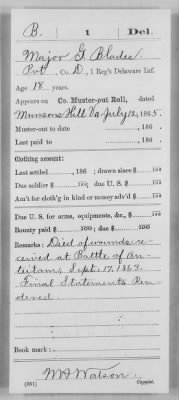 B. 1 Del.
Major G. Blades.
Pvt, Co. D, 1 Reg't Delaware Inf.
Age 18 years.
Appears on Co. Muster-out Roll, dated
Munsons Hill Va July 12, 1865.
Muster-out to date , 186 .
Last paid to , 186 .
Clothing account:
Last settled , 186 ; drawn since $ 100
Due soldier $ 100; due U. S. $ 100
Am't for cloth'g in kind or money adv'd $ 100
Due U. S. for arms, equipments, &c., $ 100
Bounty paid $ 100; due $ 100
Remarks: Died of wounds re-
ceived at Battle of An-
tietam, Sept. 17, 1862.
Final Statements Ren-
dered
Book mark:
Watson.
(361) Copyist.